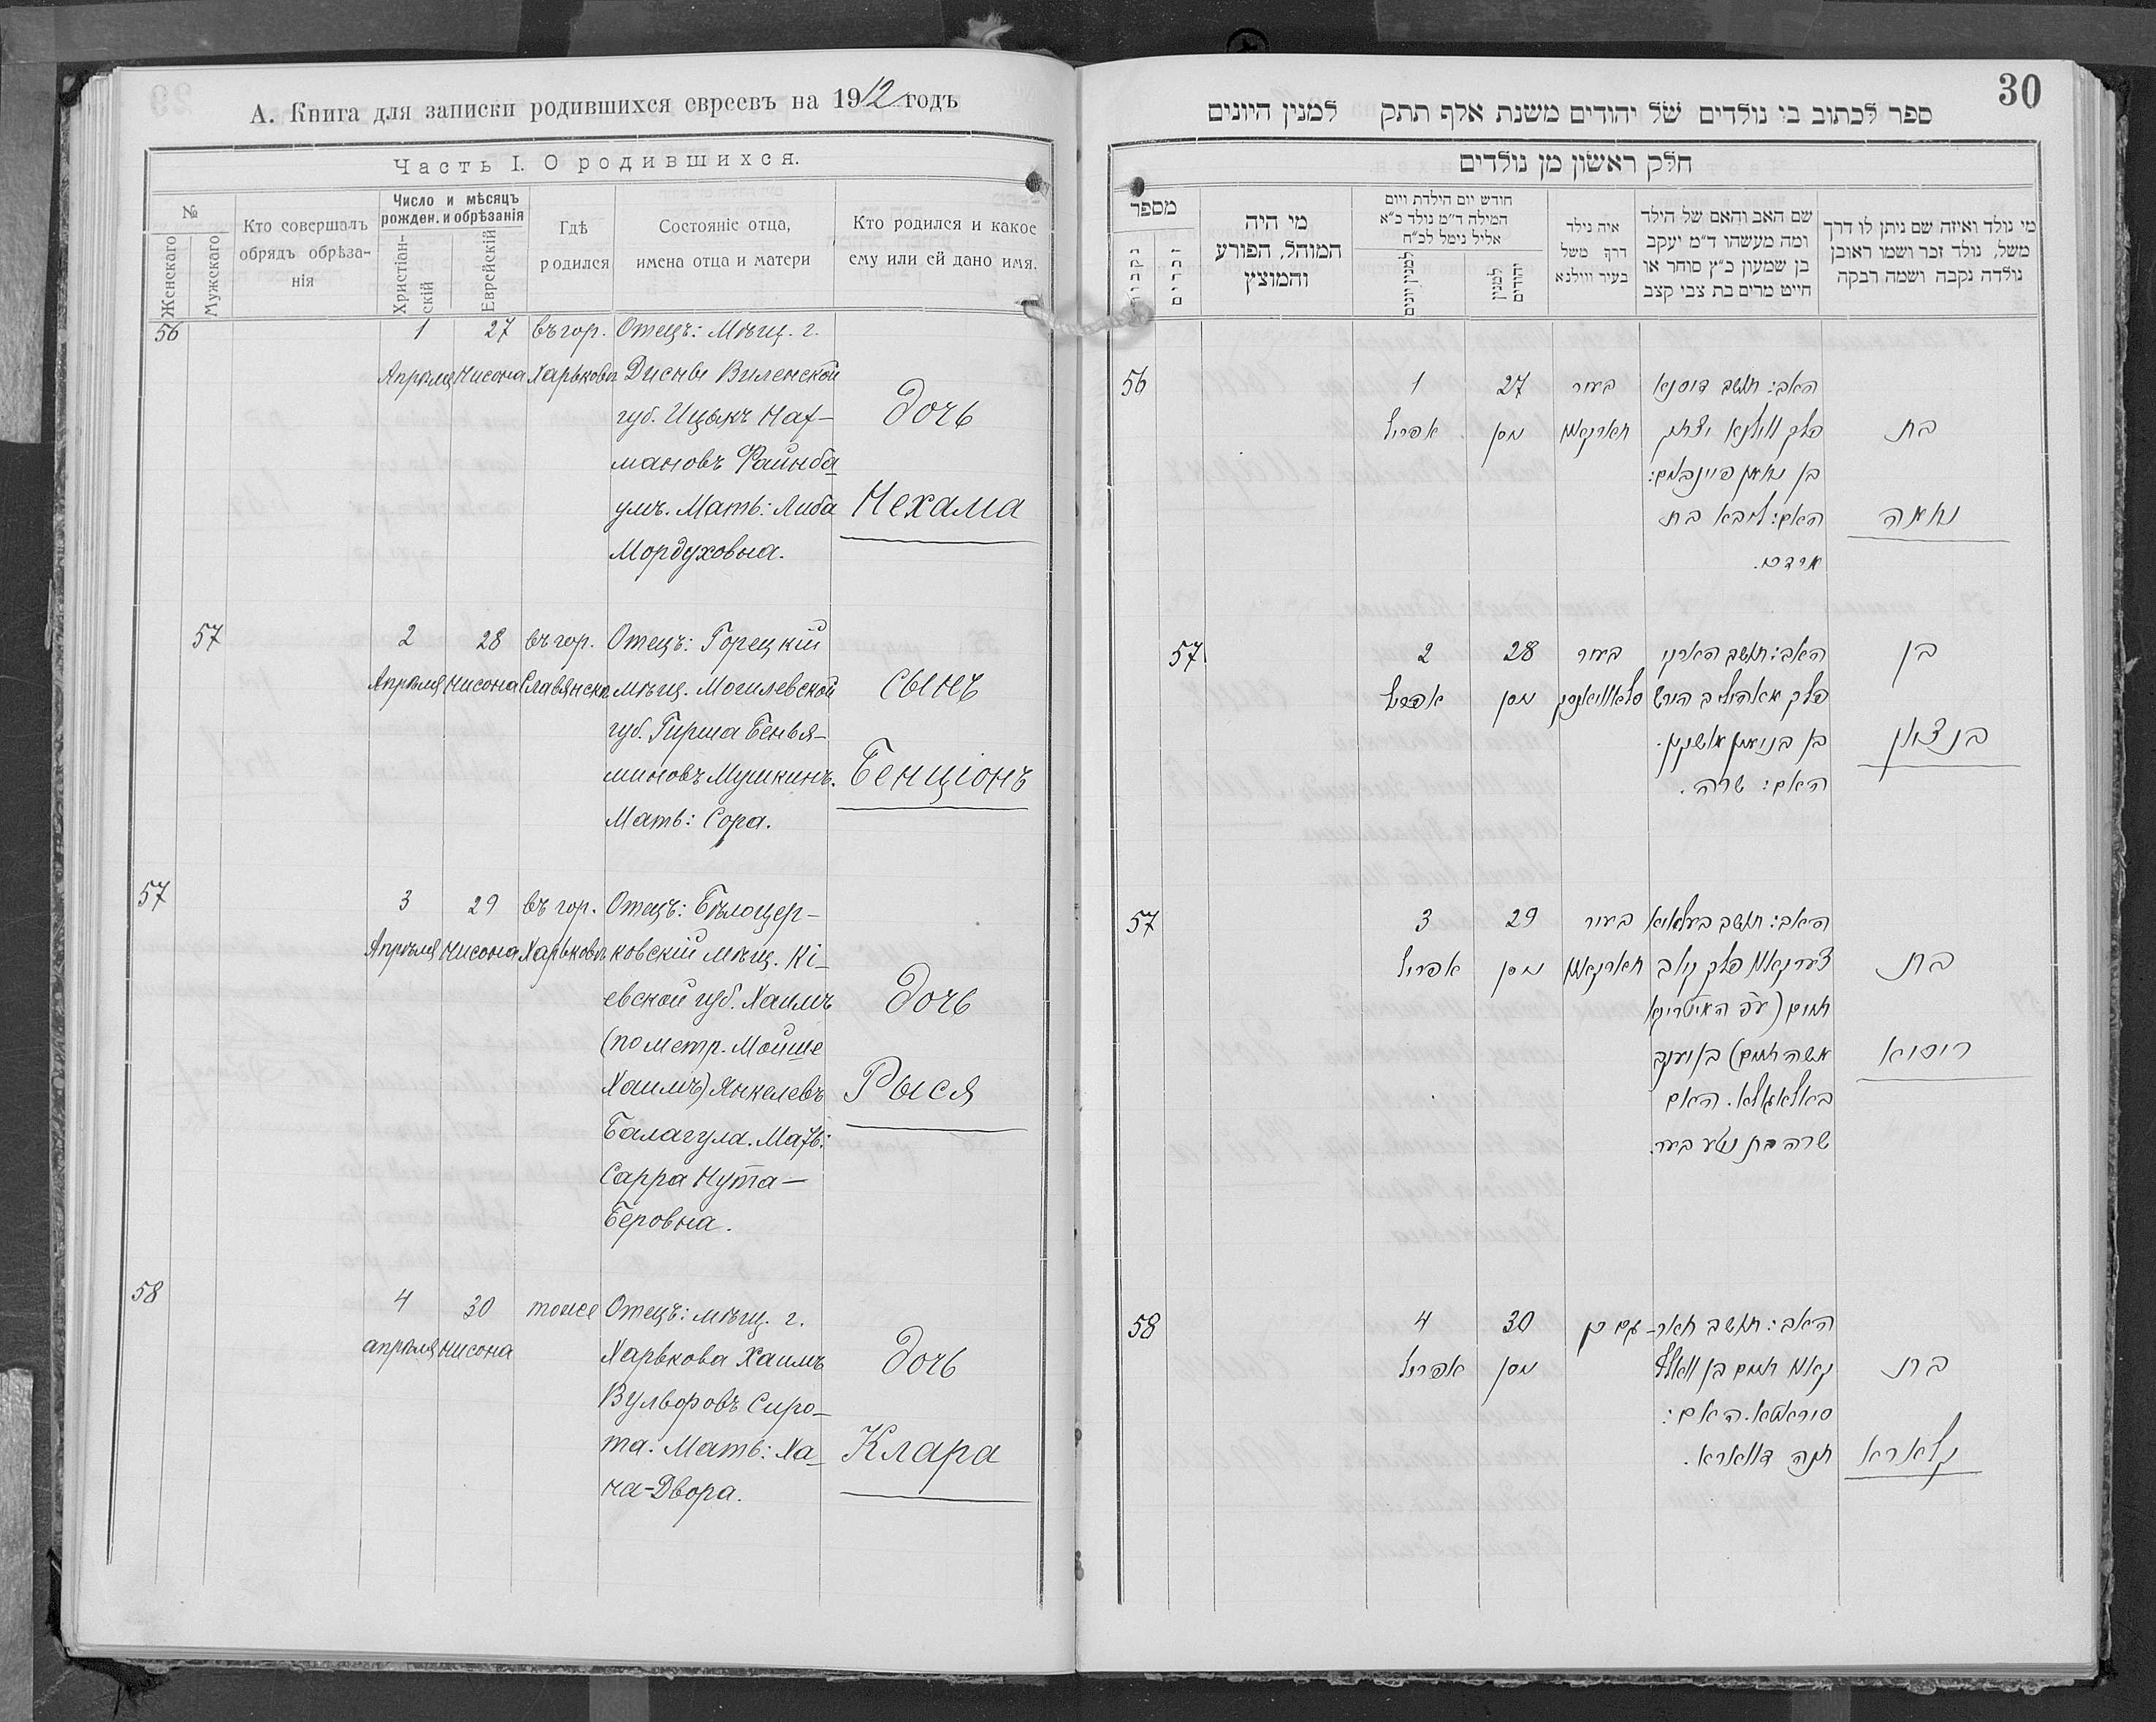 А. Книга для записки родившихся евреевъ на 1912 годъ
Часть I. О родившихся.
№
Женскаго
Мужскаго
Кто совершалъ
обрядъ обрѣза-
нія
Число и мѣсяцъ
рожден. и обрѣзанія
Христіан-
скій
Еврейскій
Гдѣ
родился
Состояніе отца,
имена отца и матери
Кто родился и какое
ему или ей дано имя.
56
1
Апрѣля
27
Нисона
въ гор.
Харьковѣ
Отецъ: Мѣщ. г.
Дисны Виленской
губ. Ицыкъ Нах-
мановъ Файнба
умъ. Мать: Либа
Мордуховна.
Дочь
Нехама
57
2
Апрѣля
28
Нисона
въ гор.
Славянскѣ
Отецъ: Горецкій
мѣщ. Могилевской
губ. Гирша Бенья-
миновъ Мушкинъ.
Мать: Сора.
сынъ
Бенціонъ
57
3
Апрѣля
29
Нисона
въ гор.
Харьковѣ
Отецъ: Бѣлоцер-
ковскій мѣщ. Кі-
евской губ. Хаимъ
(по метр. Мойше
Хаимъ) Янкелевъ
Балагула. Мать:
Сарра Нута-
Беровна.
Дочь
Рыся
58
4
апрѣля
30
нисона
тоже
Отецъ: мѣщ. г.
Харькова Хаимъ
Вульфовъ Сиро-
та. Мать: Ха-
на-Двора.
Дочь
Клара
30
ספר לכתוב בו נולדים של יהודים משנת אלף תתק למנין היונים
חלק ראשון מן נולדים
מספר
נקבות
זכרים
מי היה
המוהל, הפורע
והמוצץ
חודש יום הילדת ויום
המילה ד״מ נולד כ״א
אליל נימל לכ״ח
למנין יונים
למנין
יהודים
איה נילד
דרך משל
בעיר ווילנא
שם האב והאם של הילד
ומה מעשהו ד״מ יעקב
בן שמעון כ״ץ סוחר או
חייט מרים בת צבי קצב
מי נולד ואיזה שם ניתן לו דרך
משל, נולד זכר ושמו ראובן
נולדה נקבה ושמה רבקה
56
1
אפריל
27
ניסן
בעיר
חארקאוו
האב: תושב דיסנא
פלך ווילנא יצחק
בן נחמן פיינבוים:
האם: ליבא בת
מרדכי.
בת
נחמה
57
2
אפריל
28
ניסן
בעיר
סלאוויאנסק
האב: תושב הארקי
פלך מאהילוב הירש
בן בנימין מושקין.
האם: שרה.
בן
בנציון
57
3
אפריל
29
ניסן
בעיר
חארקאוו
האב: תושב בעלאיא
צערקאוו פלך קיוב
חיים (עפ המיטריקא
משה חיים) בן יעקב
באלאגולא. האם
שרה בת נטע בער.
בת
ריסיא
58
4
אפריל
30
ניסן
גם כן
האב: תושב חאר-
קאוו חיים בן וואלף
סיראטא. האם:
חנה דווארא.
בת
קלארא